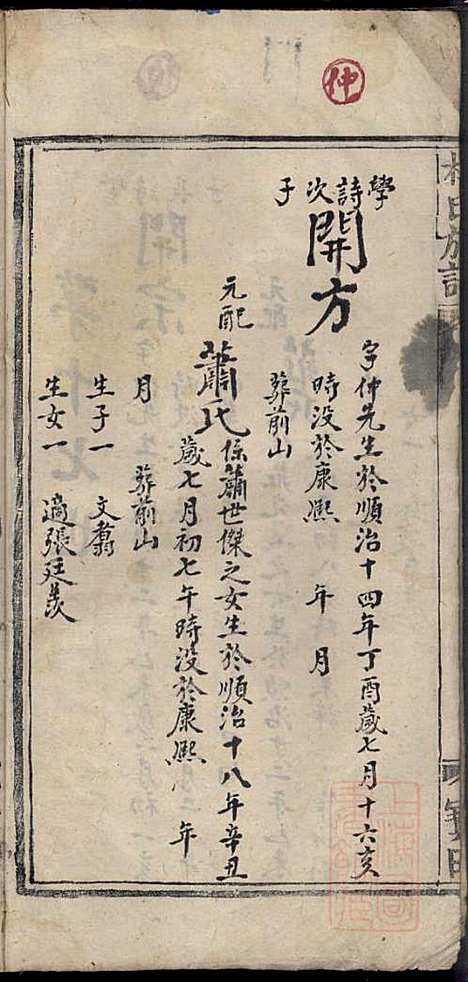 仲
學詩次子
開方
字仲先生於順治十四年丁酉歲七月十六亥
時没於康熙 年 月
葬前山
元配
蕭氏
係蕭世傑之女生於順治十八年辛丑
歲七月初七午時没於康熙 年
月 葬前山
生子一 文翥
生女一 適張廷羨